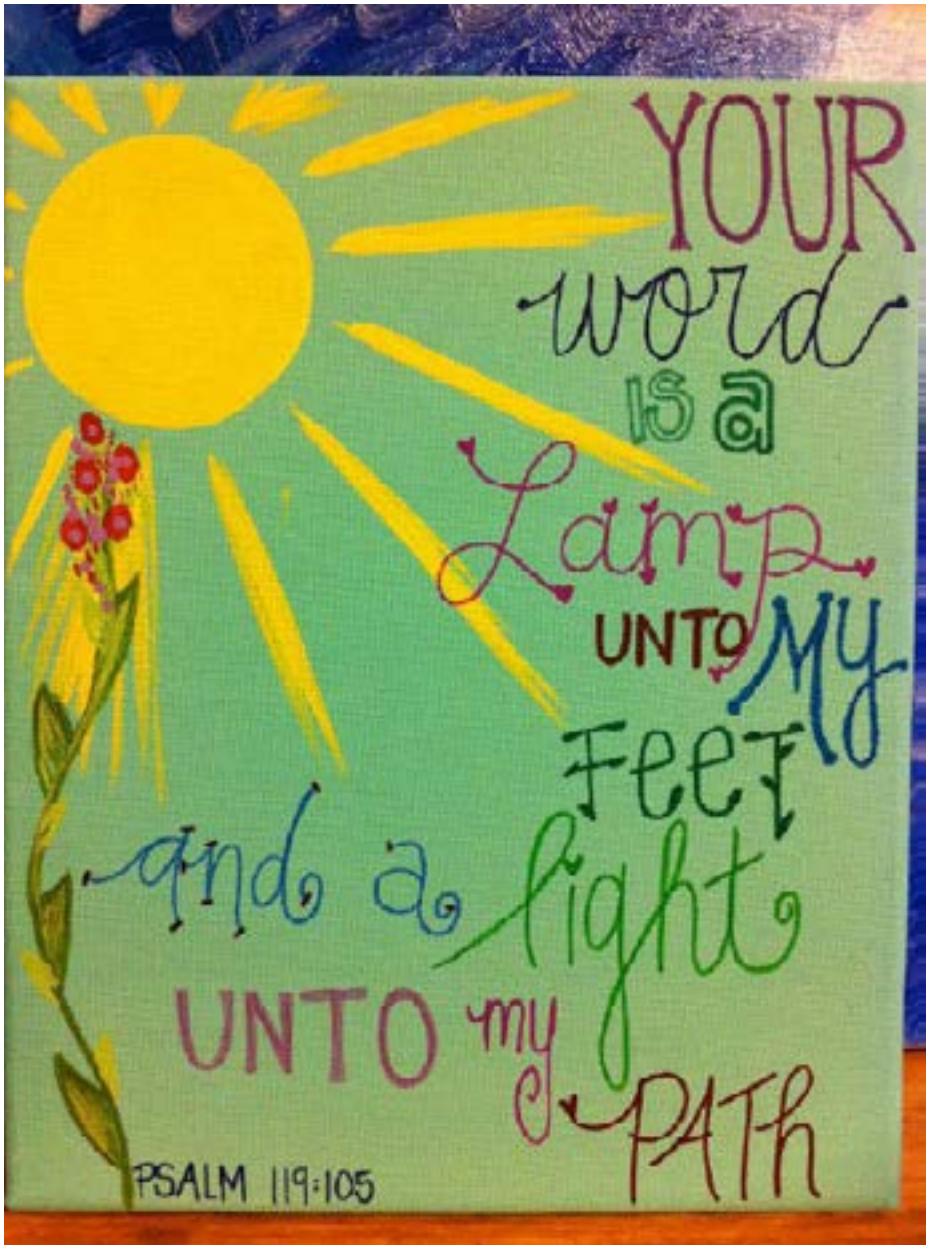 YOUR
word
is a
Lamp
UNTO My
FeeT
and a light
UNTO my
PATh
PSALM 119:105